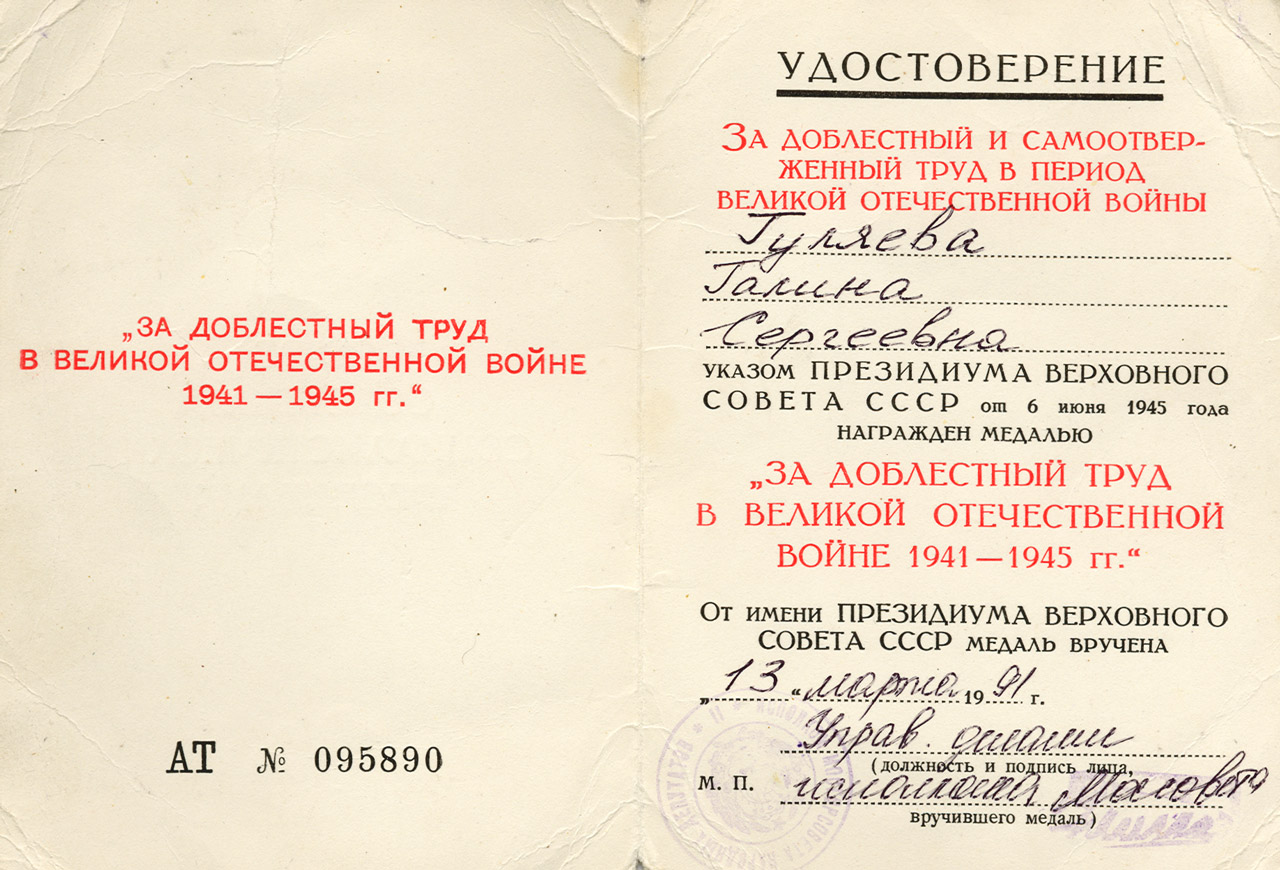 „ЗА ДОБЛЕСТНЫЙ ТРУД
В ВЕЛИКОЙ ОТЕЧЕСТВЕННОЙ ВОЙНЕ
1941 — 1945 гг.“
АТ № 095890
УДОСТОВЕРЕНИЕ
ЗА ДОБЛЕСТНЫЙ И САМООТВЕР-
ЖЕННЫЙ ТРУД В ПЕРИОД
ВЕЛИКОЙ ОТЕЧЕСТВЕННОЙ ВОЙНЫ
Гуляева
Галина
Сергеевна
УКАЗОМ ПРЕЗИДИУМА ВЕРХОВНОГО
СОВЕТА СССР от 6 июня 1945 года
НАГРАЖДЕН МЕДАЛЬЮ
„ЗА ДОБЛЕСТНЫЙ ТРУД
В ВЕЛИКОЙ ОТЕЧЕСТВЕННОЙ
ВОЙНЕ 1941 — 1945 гг.“
От имени ПРЕЗИДИУМА ВЕРХОВНОГО
СОВЕТА СССР МЕДАЛЬ ВРУЧЕНА
„13“ марта 1991 г.
Управ. делами
(должность и подпись лица,
М. П. исполкома Мосовета
вручившего медаль)